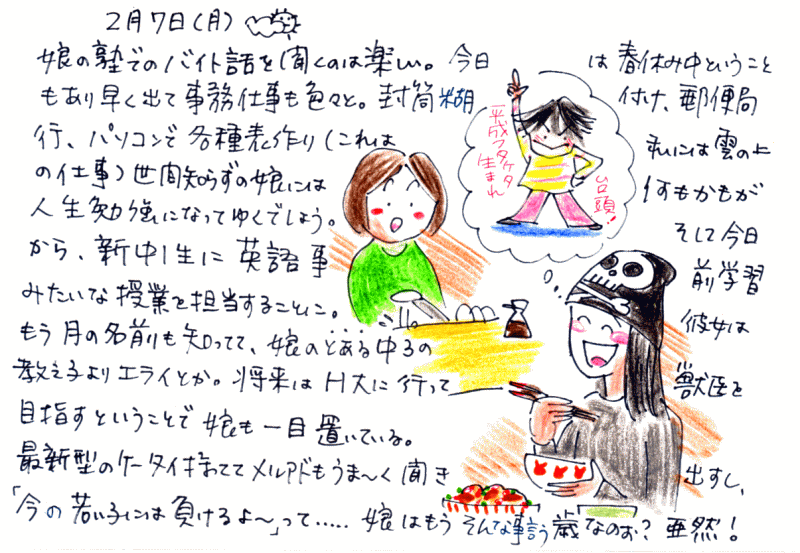 2月7日(月)
娘の塾でのバイト話を聞くのは楽しい。今日は春休み中ということ
もあり早く出て事務仕事も色々と。封筒糊付け、郵便局
行、パソコンで各種表作り(これは私には雲の上
の仕事)世間知らずの娘には何もかもが
人生勉強になってゆくでしょう。そして今日
から、新中1生に英語事前学習
みたいな授業を担当することに。彼女は
もう月の名前も知ってて、娘のとある中3の
教え子よりエライとか。将来はH大に行って獣医を
目指すということで娘も一目置いている。
最新型のケータイ持っててメルアドもうま〜く聞き出すし、
「今の若い子には負けるよ〜」って.....娘はもうそんな事言う歳なのお?唖然!
平成フタケタ
生まれ
台頭!